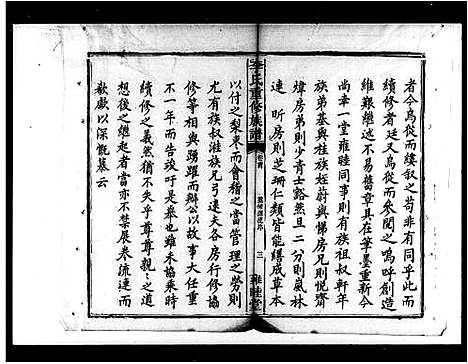 者今為從而縷叙之苟非有同乎此而
續修者廷又為從而參閱之嗚呼創造
維艱繼述不易舊章具在筆墨重新今
尚幸一堂雍睦同事則有族祖叔軒年
族弟基與桂族姪蔚與悌房兄則悦齋
煒房弟則少青士谿然旦二分則嵐林
速昕房則芝珊仁類皆能繕成草本
李氏重修族譜
卷首
三
雍睦堂
以付之梨棗而會稽之當管理之勞則
尤有族叔淮族兄弓遠夫各房行修協
修等相與踴躍而廝以大事大任重
不一年而告竣吁是恭也雖未協乘時
續修之義然猶不失乎尊尊親親之道
想後之繼起者當亦不禁展卷流連而
欷歔以深慨慕云